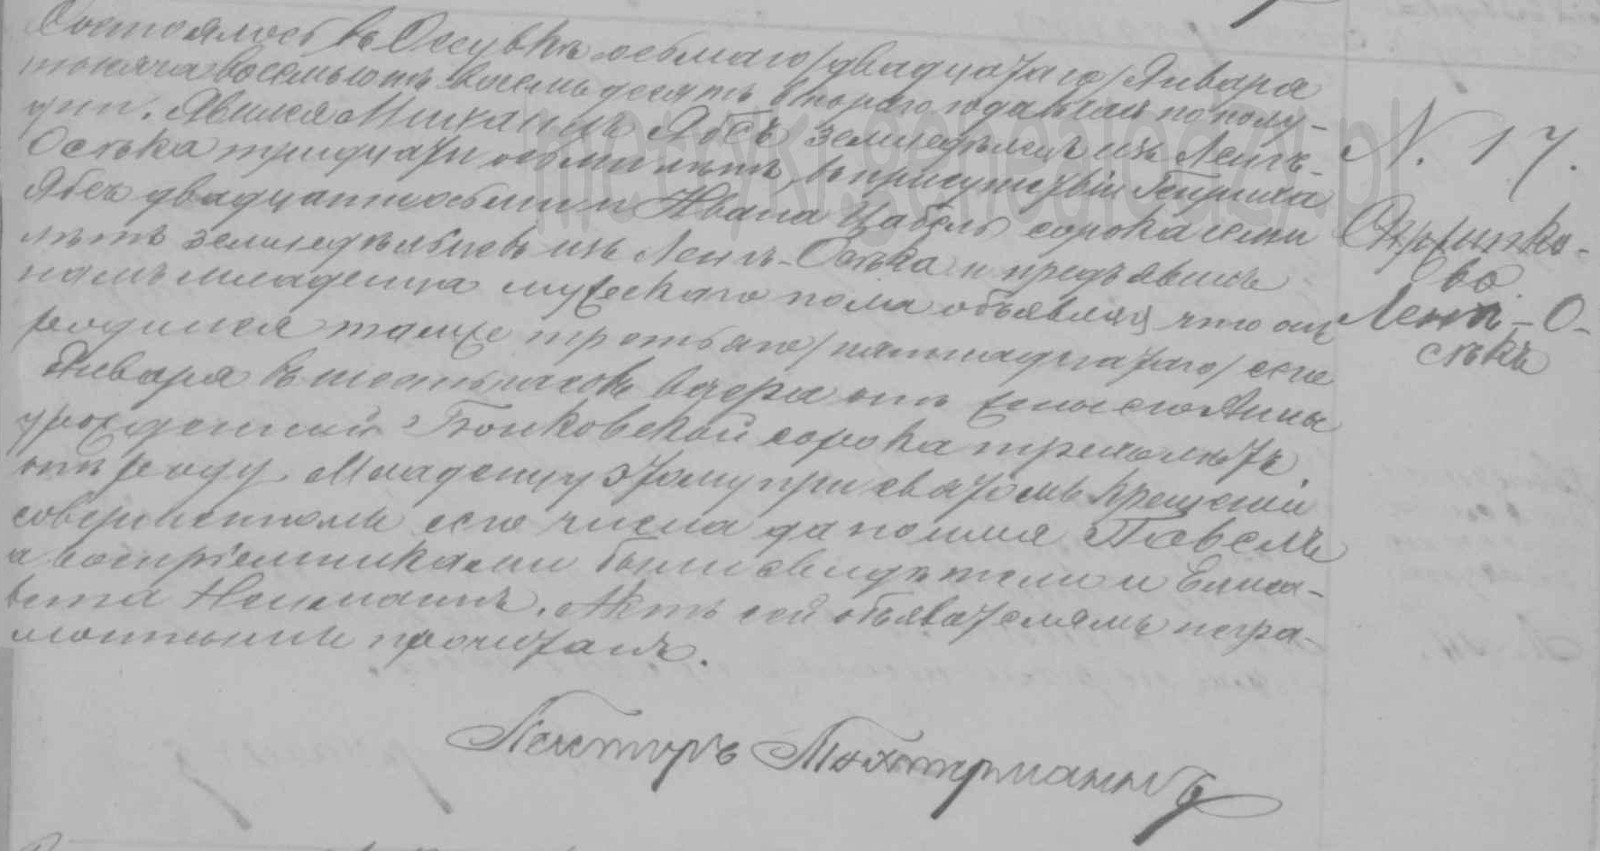 Состоялось въ Осувкѣ осьмаго /двадцатаго/ Января
тысяча восемьсотъ восемьдесятъ втораго года въ часъ пополу-
дни. Явился Михаилъ Ябсъ земледѣлецъ изъ Ленгъ-
Осѣка тридцати осьми лѣтъ, въ присутствіи Генриха
Ябсъ двадцати осьми и Ивана Цабель сорока семи
лѣтъ земледѣльцевъ изъ Ленгъ-Осѣка и предъявилъ
намъ младенца мужескаго пола объявляя, что онъ
родился тамже третьяго /пятнадцатаго/ сего
Января въ шесть часовъ вечера отъ жены его Анны
урожденной Бонковской сорока трехъ лѣтъ
отъ роду. Младенцу этому при святомъ крещеніи
совершенномъ сего числа дано имя Павелъ
а воспріемниками были свидѣтели и Елиса-
вета Нейманнъ. Актъ сей объявателямъ негра-
мотнымъ прочитанъ.
Пасторъ
N. 17.
Ленгъ-О-
сѣкъ
metryki.genealodzy.pl